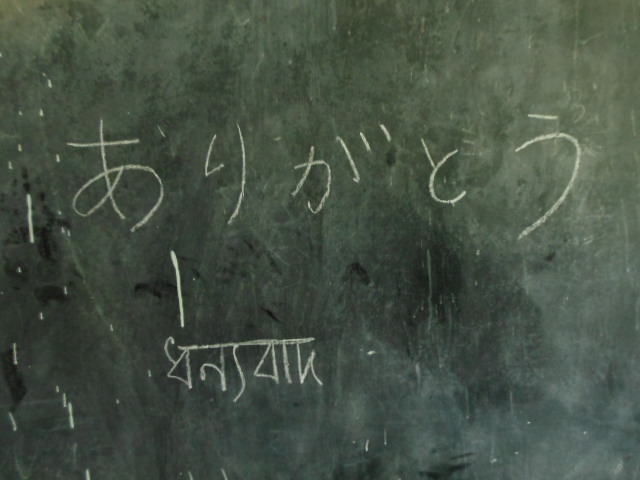 ありがとう
ধন্যবাদ